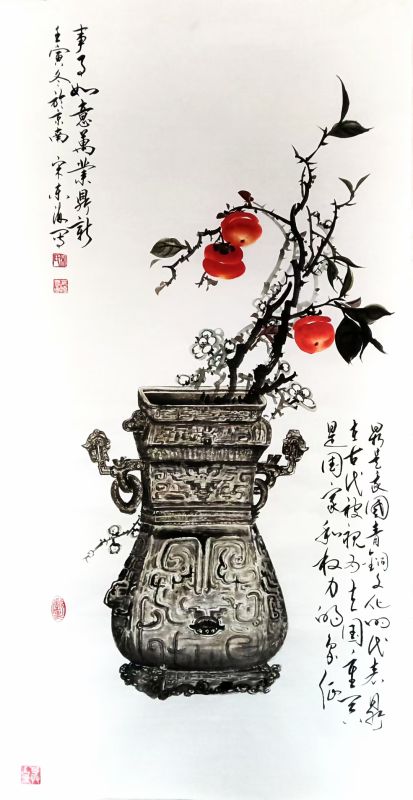 事事如意萬業鼎新
壬寅冬於京南 宋东海写
鼎是我國青銅文化的代表鼎
在古代被視为立国重器
是国家和权力的象征